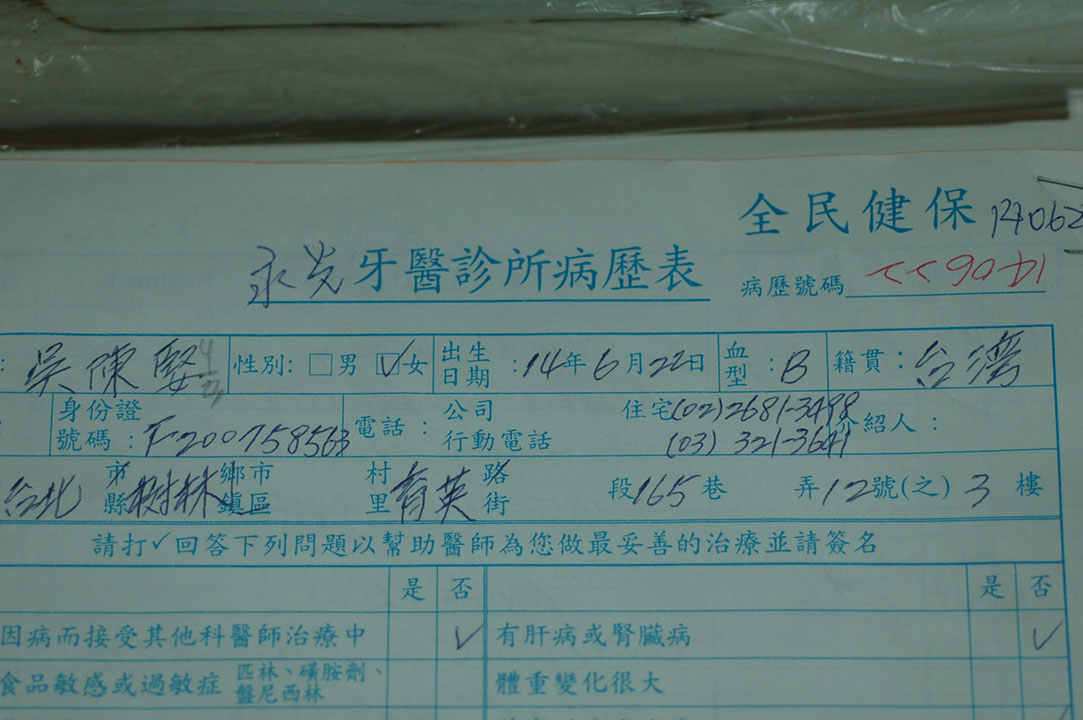 全民健保
永光牙醫診所病歷表
病歷號碼
吳陳 性別: □男 ☑女 出生日期:14年6月22日 血型:B 籍貫:台灣
身份證號碼:F200758563 電話: 公司 住宅(02)2681-3498 介紹人:
行動電話 (03) 321-3641
台北 市縣 樹林 鄉鎮市區 村里 育英 路街 段 165 巷 弄 12 號(之) 3 樓
請打✓回答下列問題以幫助醫師為您做最妥善的治療並請簽名
是 否 是 否
因病而接受其他科醫師治療中 ✓ 有肝病或腎臟病 ✓
食品敏感或過敏症 匹林、磺胺劑、盤尼西林 體重變化很大